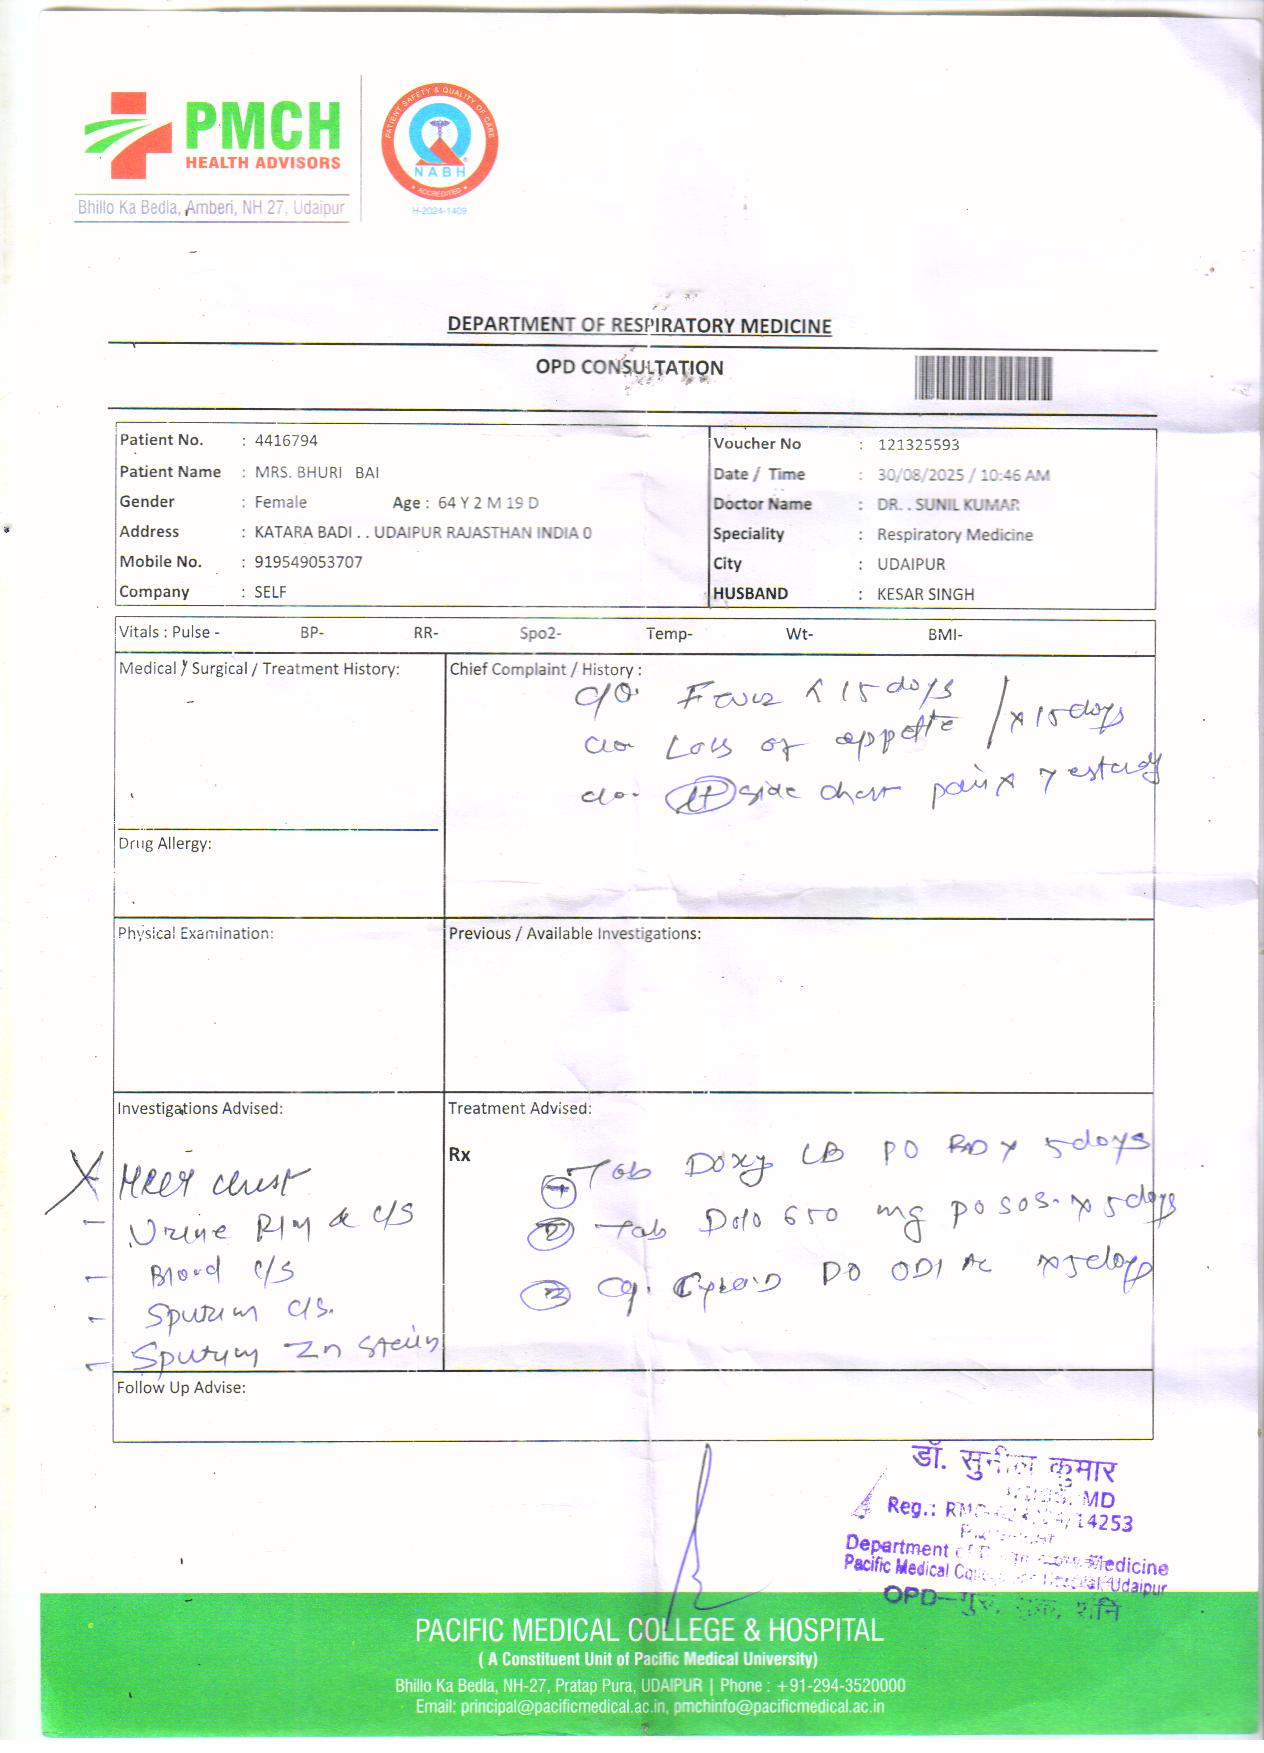 PMCH
HEALTH ADVISORS
Bhillo Ka Bedla, Amberi, NH 27, Udaipur
PATIENT SAFETY & QUALITY OF CARE
NABH
ACCREDITED
H-2024-1409
DEPARTMENT OF RESPIRATORY MEDICINE
OPD CONSULTATION
Patient No. : 4416794 Voucher No : 121325593
Patient Name : MRS. BHURI BAI Date / Time : 30/08/2025 / 10:46 AM
Gender : Female Age : 64 Y 2 M 19 D Doctor Name : DR. . SUNIL KUMAR
Address : KATARA BADI . . UDAIPUR RAJASTHAN INDIA 0 Speciality : Respiratory Medicine
Mobile No. : 919549053707 City : UDAIPUR
Company : SELF HUSBAND : KESAR SINGH
Vitals : Pulse - BP- RR- Spo2- Temp- Wt- BMI-
Medical / Surgical / Treatment History: Chief Complaint / History :
c/o 15 days
c/o Loss of appette x 15 days
c/o side chest pain x yesterday
Drug Allergy:
Physical Examination: Previous / Available Investigations:
Investigations Advised:
HRCT chest
Urine R/M & c/s
Blood c/s
Sputum c/s.
Sputum Zn stain
Treatment Advised:
Rx
1 Tab Doxy LB PO x 5 days
2 Tab Dolo 650 mg PO SOS x 5 days
3 PO OD x 5 days
Follow Up Advise:
डॉ. सुनील कुमार
MD
Reg.: 14253
Department Medicine
Pacific Medical Udaipur
OPD–गुरु, शनि
PACIFIC MEDICAL COLLEGE & HOSPITAL
( A Constituent Unit of Pacific Medical University)
Bhillo Ka Bedla, NH-27, Pratap Pura, UDAIPUR | Phone : +91-294-3520000
Email: principal@pacificmedical.ac.in, pmchinfo@pacificmedical.ac.in